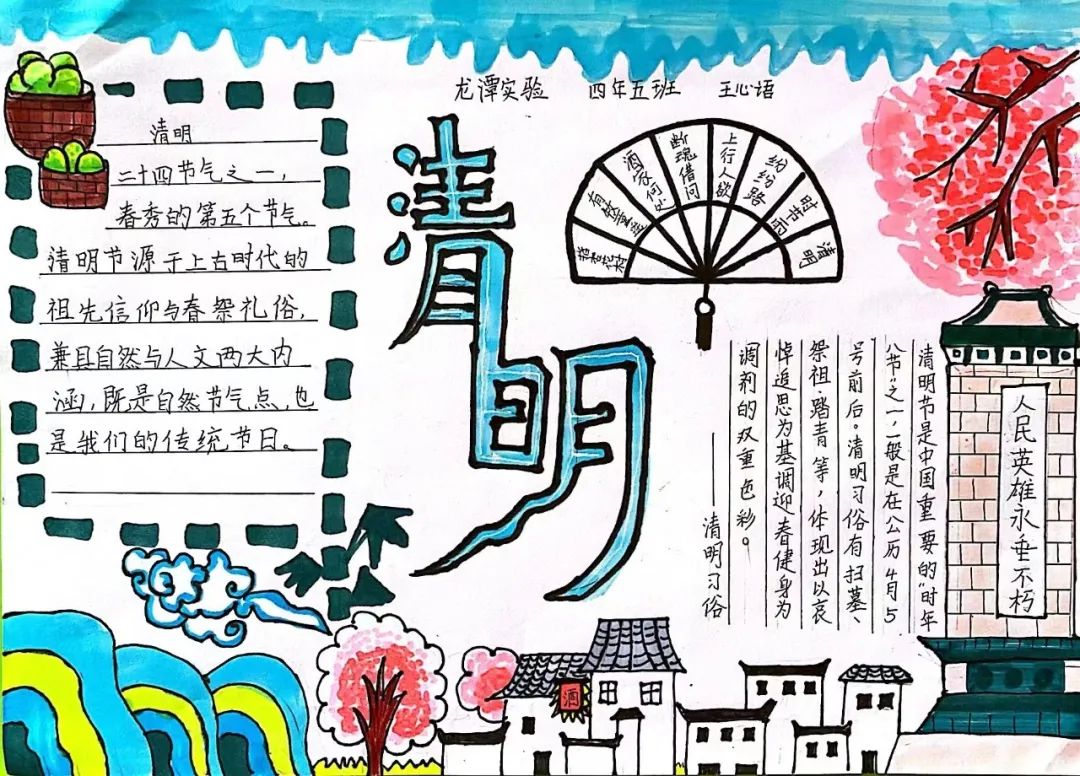 龙潭实验 四年五班 王心语
清明
二十四节气之一，
春秀的第五个节气。
清明节源于上古时代的
祖先信仰与春祭礼俗，
兼具自然与人文两大内
涵，既是自然节气点，也
是我们的传统节日。
清明
清明
时节雨
纷纷路
上行人欲
断魂借问
酒家何处
有牧童遥
指杏花村
清明节是中国重要的“时年
八节”之一，一般是在公历4月5
号前后。清明习俗有扫墓、
祭祖、踏青等，体现出以哀
悼追思为基调迎春健身为
调剂的双重色彩。
——清明习俗
人民英雄永垂不朽
酒